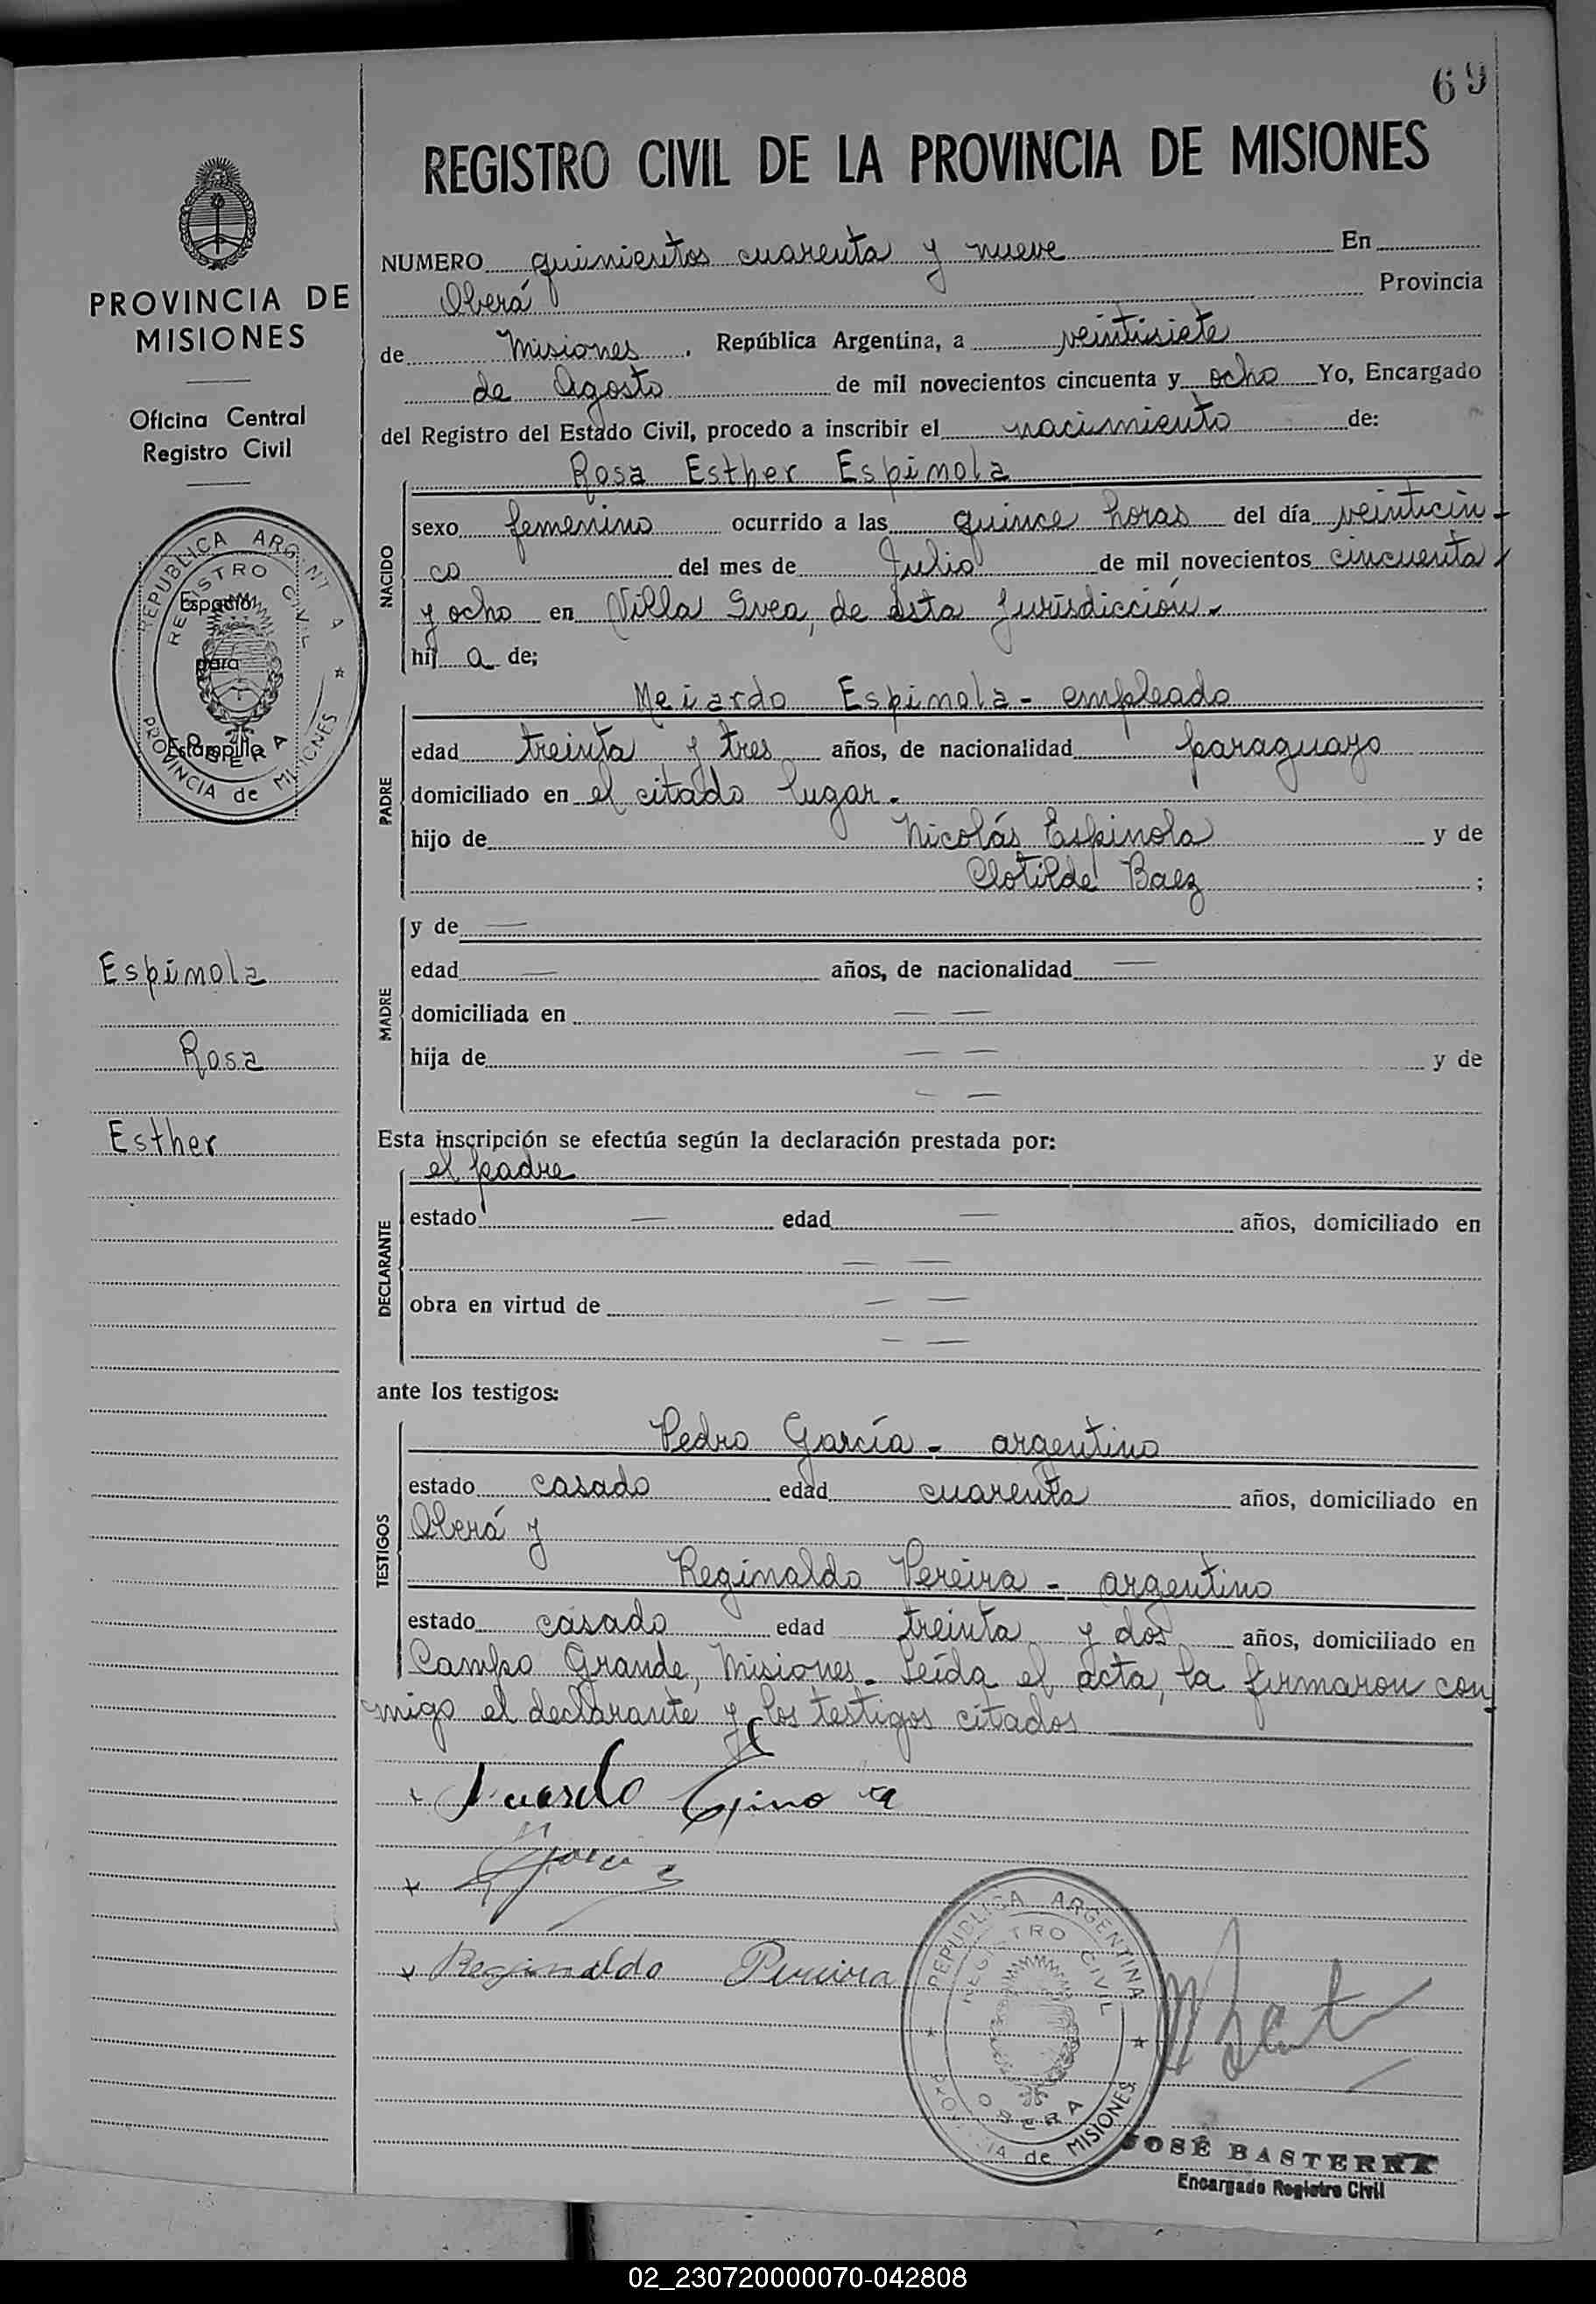 69
REGISTRO CIVIL DE LA PROVINCIA DE MISIONES
PROVINCIA DE
MISIONES
Oficina Central
Registro Civil
REPUBLICA ARGENTINA
REGISTRO CIVIL
Espacio
para
Estampilla
OBERA
PROVINCIA de MISIONES
Espínola
Rosa
Esther
NUMERO quinientos cuarenta y nueve En
Oberá Provincia
de Misiones, República Argentina, a veintisiete
de Agosto de mil novecientos cincuenta y ocho Yo, Encargado
del Registro del Estado Civil, procedo a inscribir el nacimiento de:
NACIDO
Rosa Esther Espínola
sexo femenino ocurrido a las quince horas del día veinticin-
co del mes de Julio de mil novecientos cincuenta
y ocho en Villa Svea, de ésta Jurisdicción.-
hij a de;
PADRE
Espínola - empleado
edad treinta y tres años, de nacionalidad paraguayo
domiciliado en el citado lugar.-
hijo de Nicolás Espínola y de
Clotilde Baez ;
MADRE
y de —
edad — años, de nacionalidad —
domiciliada en — —
hija de — — y de
— —
Esta inscripción se efectúa según la declaración prestada por:
DECLARANTE
el padre
estado — edad — años, domiciliado en
— —
obra en virtud de — —
— —
ante los testigos:
TESTIGOS
Pedro García - argentino
estado casado edad cuarenta años, domiciliado en
Oberá y
Reginaldo Pereira - argentino
estado casado edad treinta y dos años, domiciliado en
Campo Grande, Misiones.- Leída el acta, la firmaron con-
migo el declarante y los testigos citados
Reginaldo Pereira
REPUBLICA ARGENTINA
REGISTRO CIVIL
OBERA
PROVINCIA de MISIONES
JOSÉ BASTERRA
Encargado Registro Civil
02_230720000070-042808